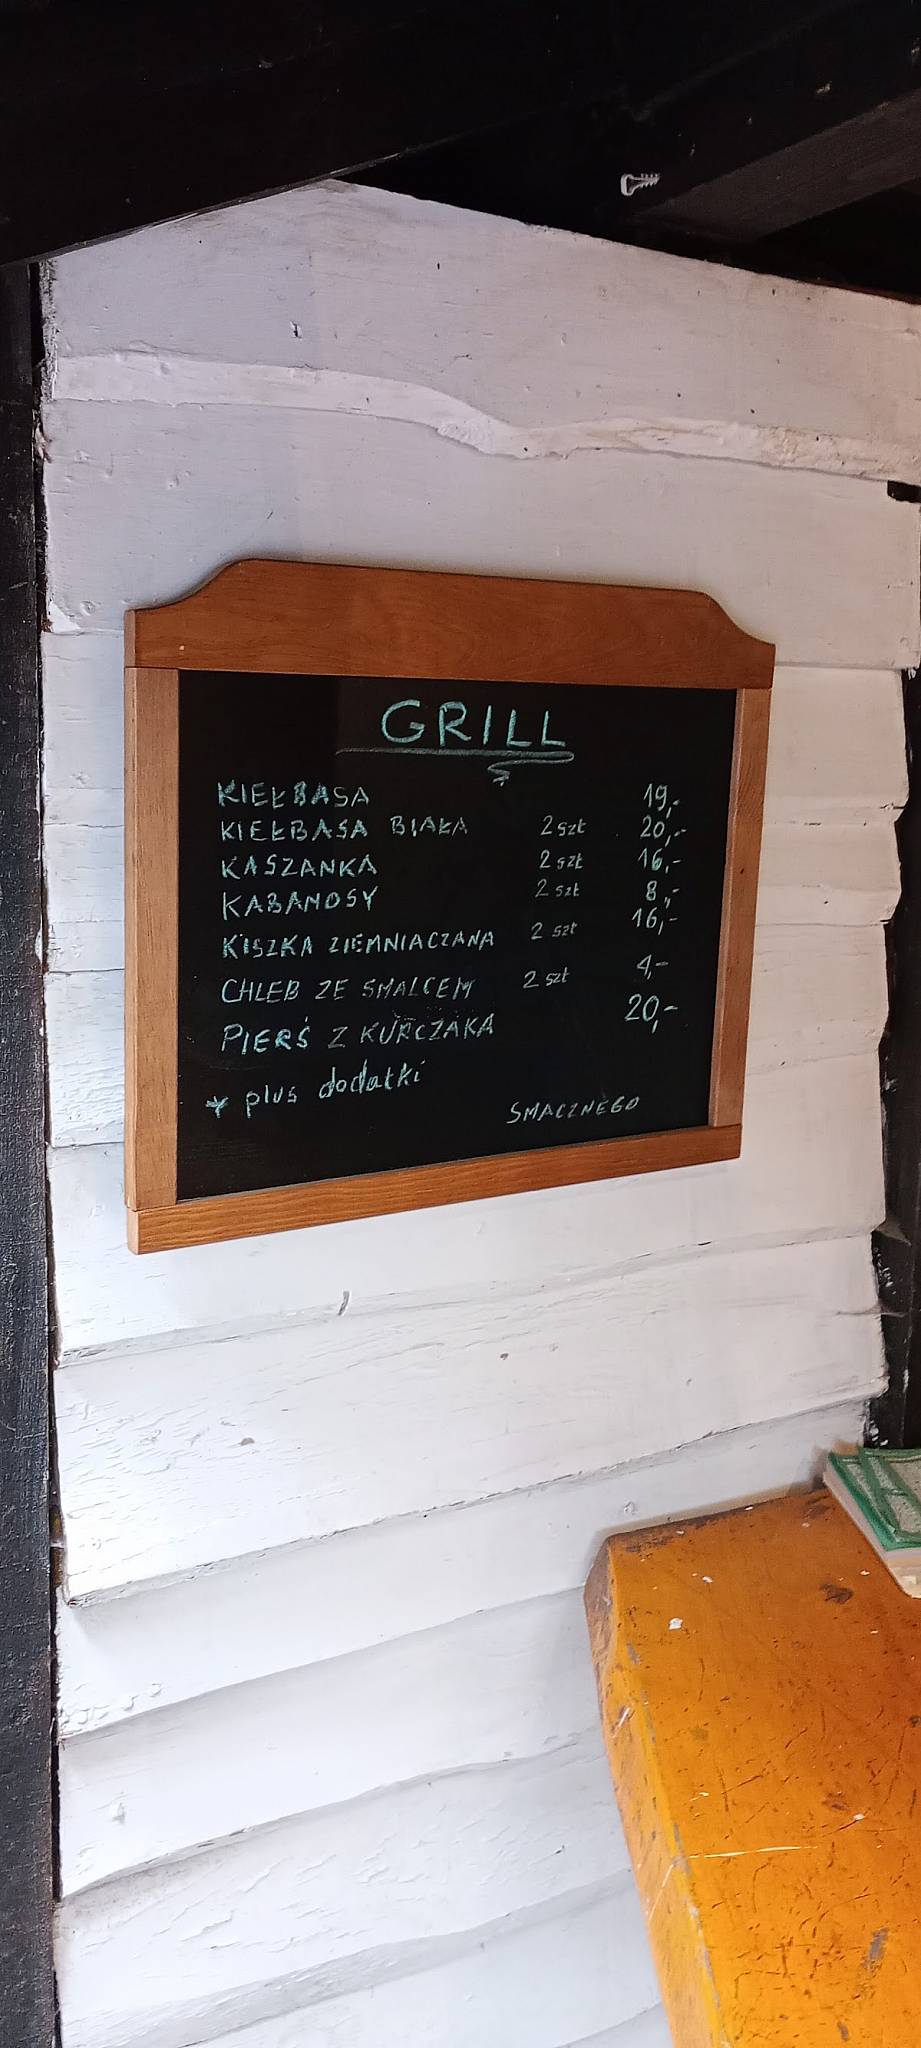 GRILL
KIEŁBASA 19,-
KIEŁBASA BIAŁA 2 szt 20,-
KASZANKA 2 szt 16,-
KABANOSY 2 szt 8,-
KISZKA ZIEMNIACZANA 2 szt 16,-
CHLEB ZE SMALCEM 2 szt 4,-
PIERŚ Z KURCZAKA 20,-
* plus dodatki
SMACZNEGO